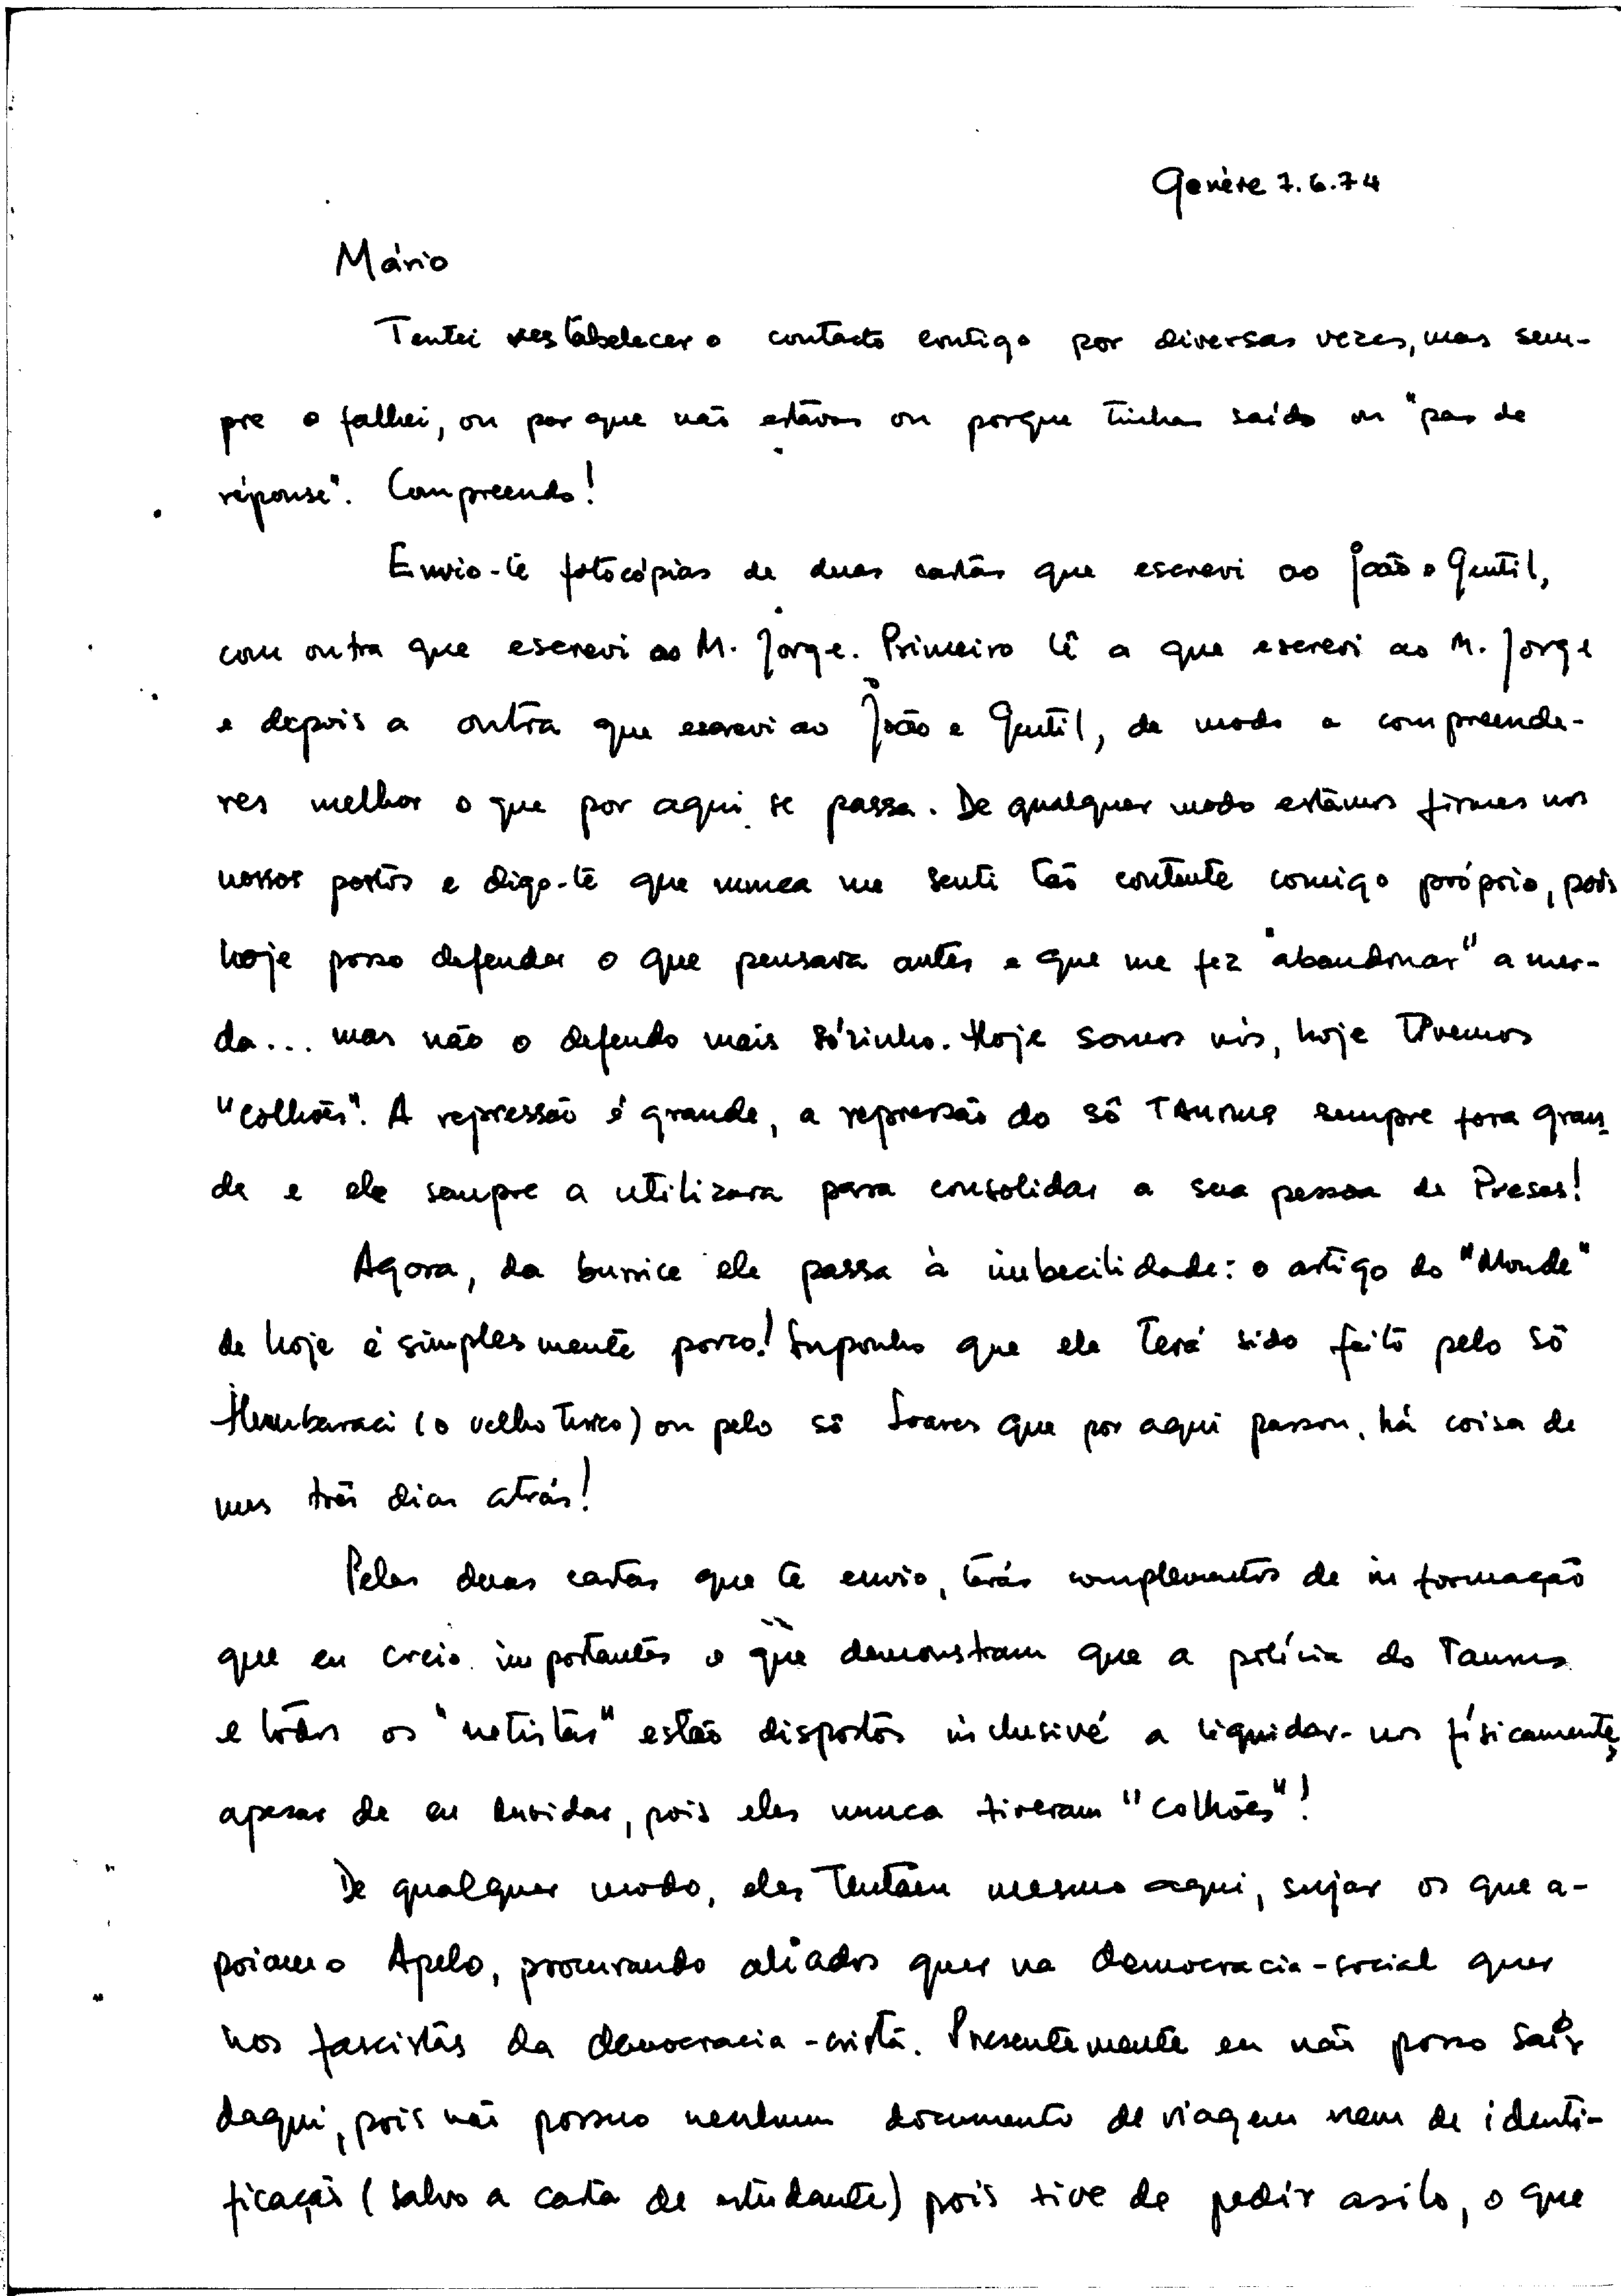 Genève 7.6.74
Mário
Tentei restabelecer o contacto contigo por diversas vezes, mas sem-
pre o falhei, ou por que não estavas ou porque tinhas saído ou "pas de
réponse". Compreendo!
Envio-te fotocópias de duas cartas que escrevi ao João e Gentil,
com outra que escrevi ao M. Jorge. Primeiro lê a que escrevi ao M. Jorge
e depois a outra que escrevi ao João e Gentil, de modo a compreende-
res melhor o que por aqui se passa. De qualquer modo estamos firmes nos
nossos postos e digo-te que nunca me senti tão contente comigo próprio, pois
hoje posso defender o que pensava antes e que me fez "abandonar" a mer-
da... mas não o defendo mais sózinho. Hoje somos nós, hoje tivemos
"colhões". A repressão é grande, a repressão do sô Taurus sempre fora gran-
de e ele sempre a utilizara para consolidar a sua pessoa de Presas!
Agora, da burrice ele passa à imbecilidade: o artigo do "Monde"
de hoje é simplesmente porco! Suponho que ele terá sido feito pelo sô
(o velho turco) ou pelo sô Soares que por aqui passou, há coisa de
uns três dias atrás!
Pelas duas cartas que te envio, terás complementos de informação
que eu creio importantes e que demonstram que a polícia do Taurus
e todos os "netistas" estão dispostos inclusivé a liquidar-nos físicamente,
apesar de eu duvidar, pois eles nunca tiveram "colhões"!
De qualquer modo, eles tentam mesmo aqui, sujar os que a-
poiam o Apelo, procurando aliados quer na democracia-social quer
nos fascistas da democracia-cristã. Presentemente eu não posso sair
daqui, pois não possuo nenhum documento de viagem nem de identi-
ficação (salvo a carta de estudante) pois tive de pedir asilo, o que